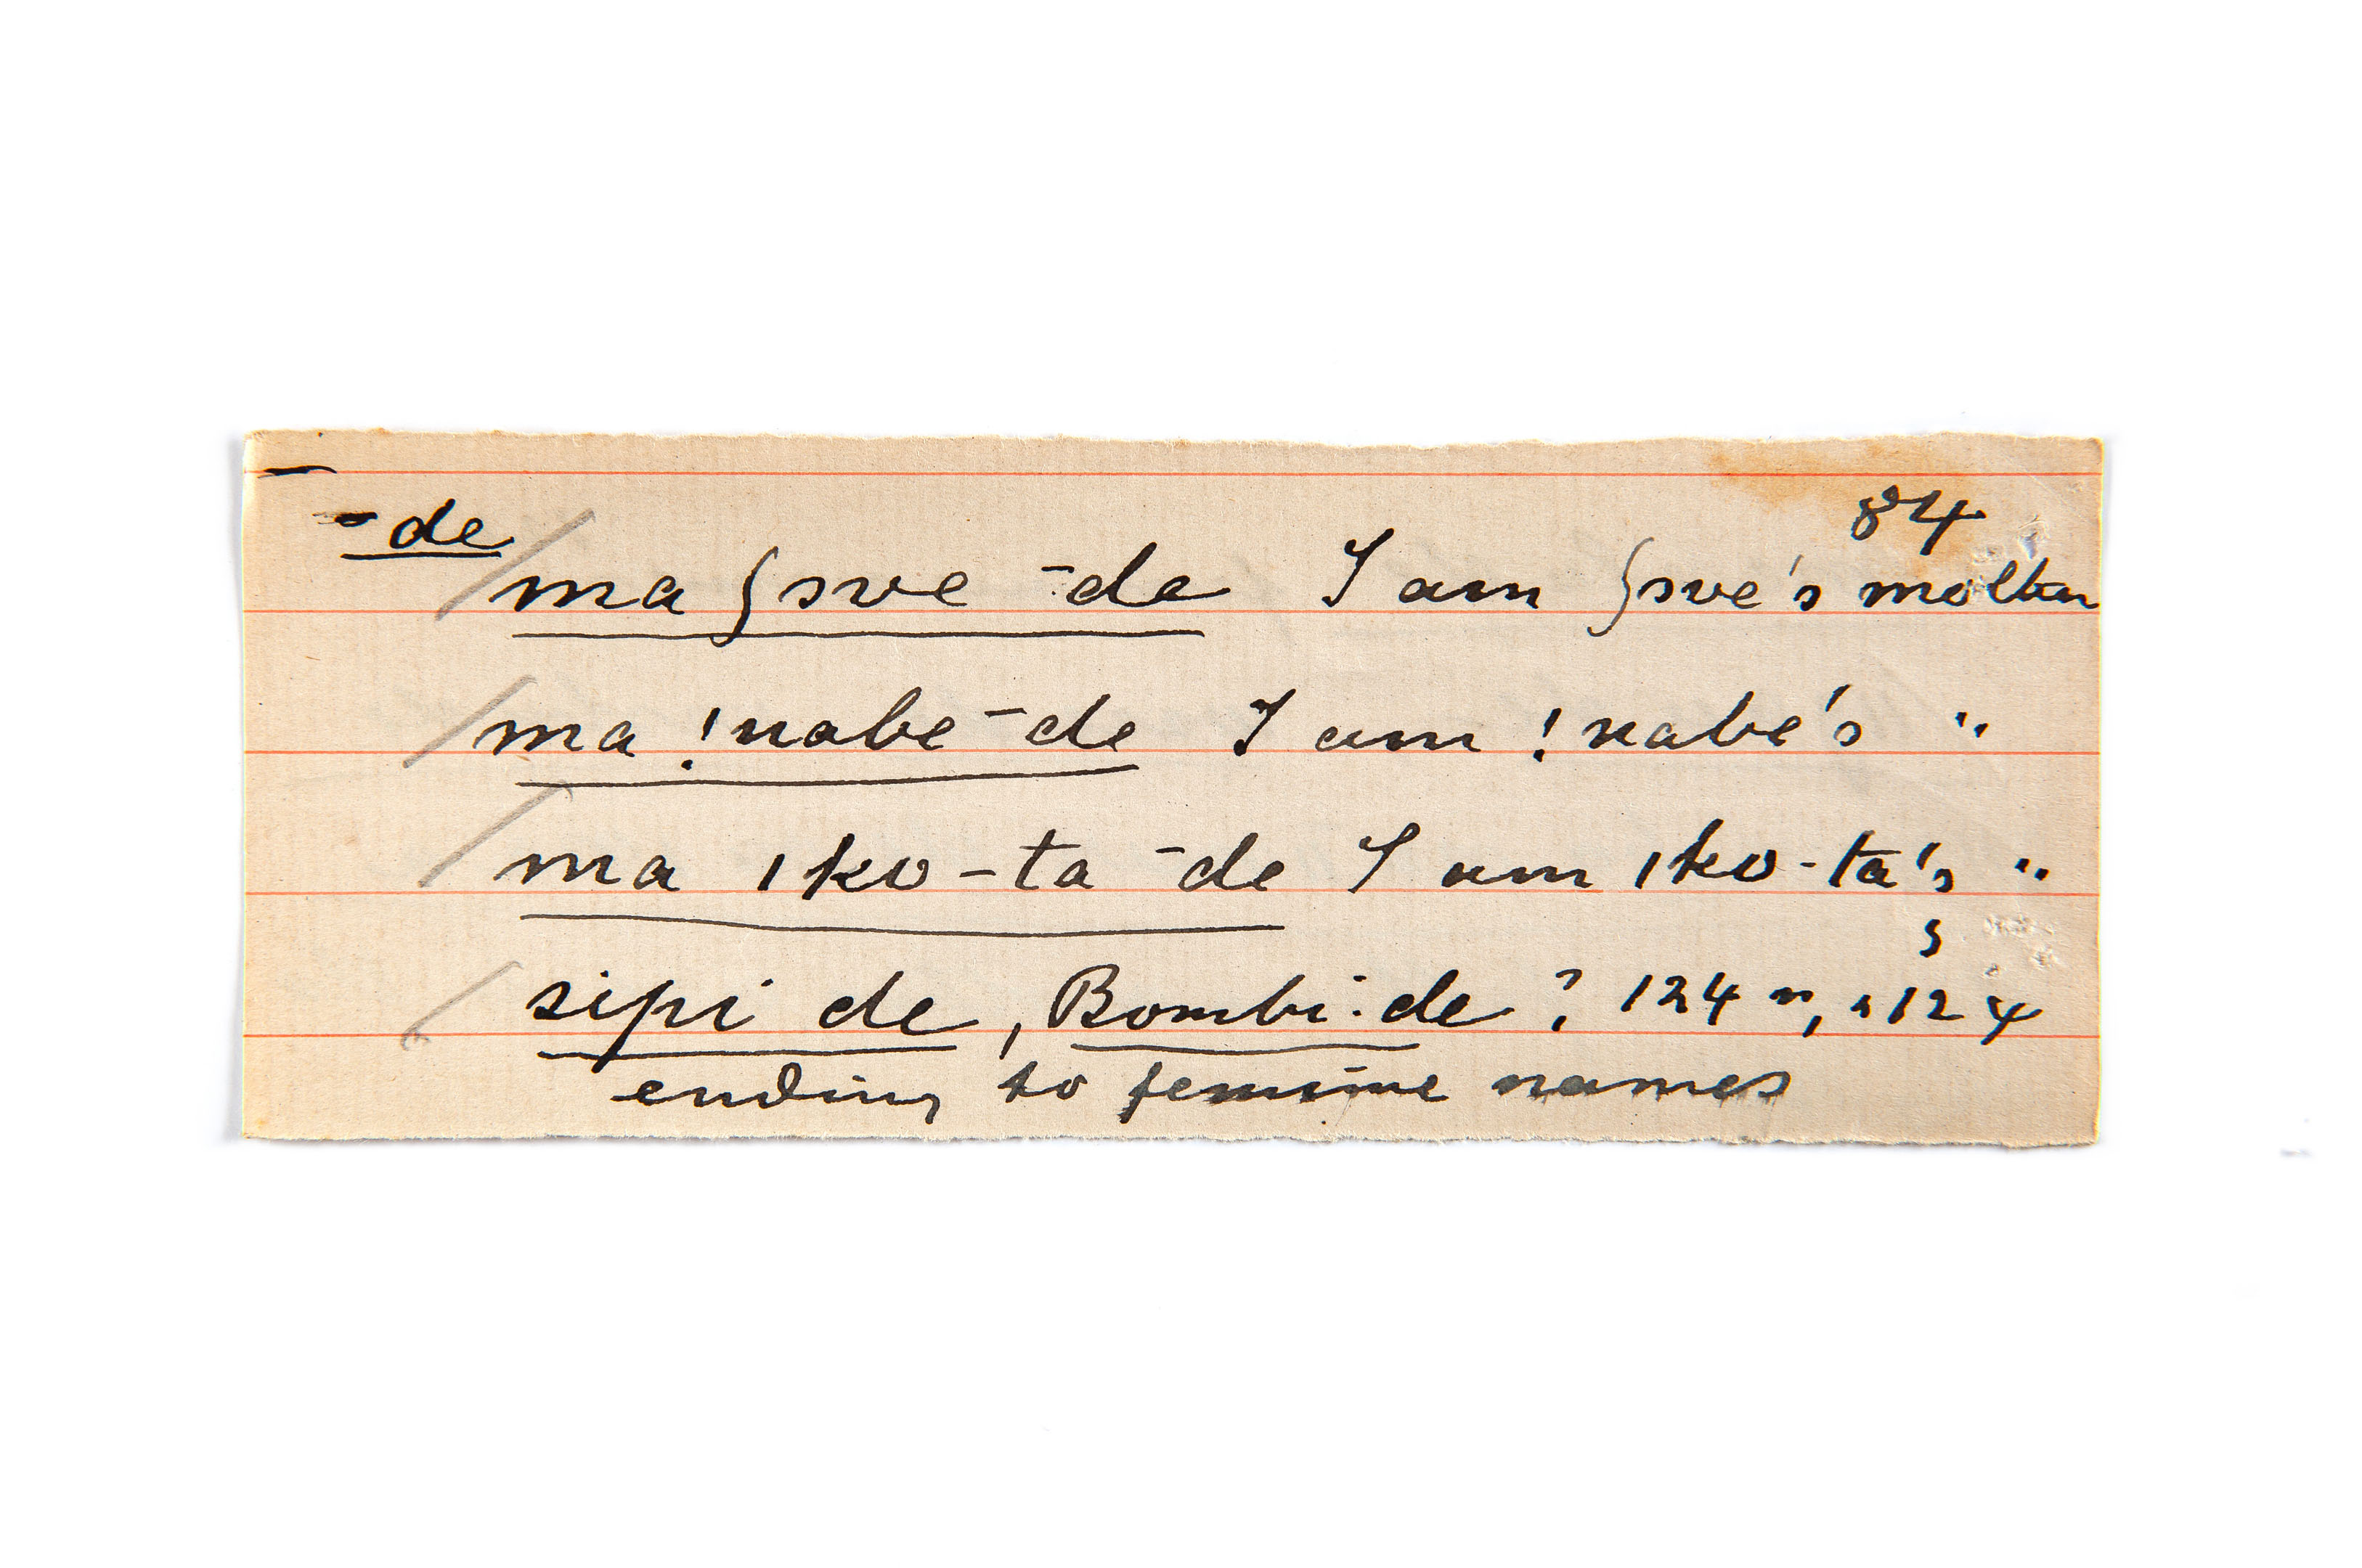 84
-de
ma ʃsve -de I am ʃsve's mother
ma !nabe -de I am !nabe's "
ma ıko-ta -de I am ıko-ta's "
sipi de, Bombi-de? 124
ending to feminine names